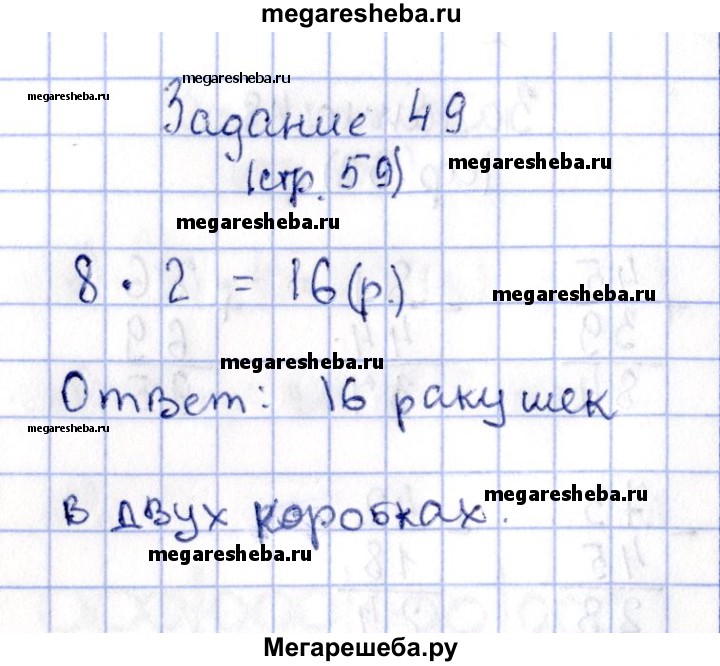 megaresheba.ru
megaresheba.ru
megaresheba.ru
Задание 49
megaresheba.ru
(стр. 59)
megaresheba.ru
8 · 2 = 16 (р.)
megaresheba.ru
megaresheba.ru
Ответ: 16 ракушек
megaresheba.ru
megaresheba.ru
в двух коробках.
megaresheba.ru
Мегарешеба.ру